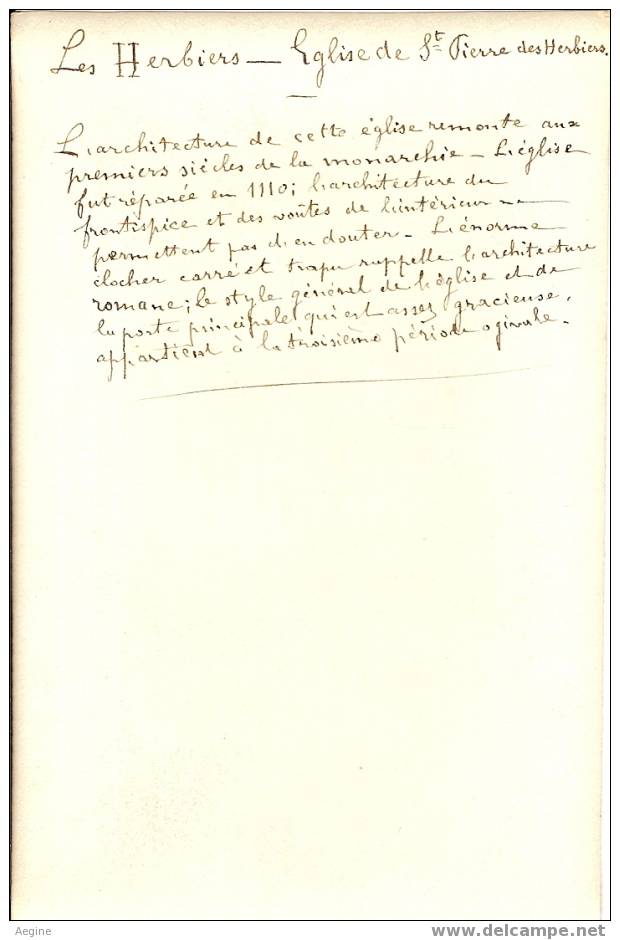 Les Herbiers — Eglise de St Pierre des Herbiers.
—
L'architecture de cette église remonte aux
premiers siècles de la monarchie — L'église
fut réparée en 1110; l'architecture du
frontispice et des voûtes de l'intérieur ne
permettent pas d'en douter — L'énorme
clocher carré et trapu rappelle l'architecture
romane; le style général de l'église et de
la porte principale qui est assez gracieuse,
appartient à la troisième période ogivale.
Aegine
www.delcampe.net